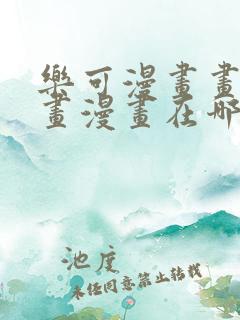 樂可漫畫畫
畫漫畫在哪
池度
未经同意禁止转载